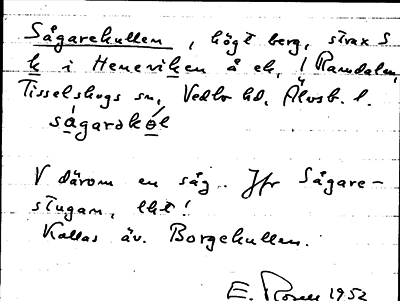 Sågarekullen, högt berg, strax S
k i Heneviken å ek, i Ramdalen,
Tisselskogs sn, Vedbo hd, Älvsb. l.
sågarəkəl
V därom en såg. Jfr Sågare-
stugan, lht!
Kallas äv. Borgekullen.
E. 1952